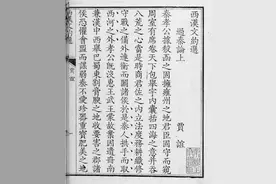 西漢文約選
過秦論上
賈誼
秦孝公據殽函之固擁雍州之地君臣固守而窺
周室有席卷天下包舉宇內囊括四海之意并吞
八荒之心當是時商君佐之內立法度務耕織修
守戰之備外連衡而鬭諸侯於是秦人拱手而取
西河之外孝公既沒惠王武王蒙故業因遺冊南
兼漢中西舉巴蜀東割膏腴之地收要害之郡諸
侯恐懼會盟而謀弱秦不愛珍器重寶肥美之地